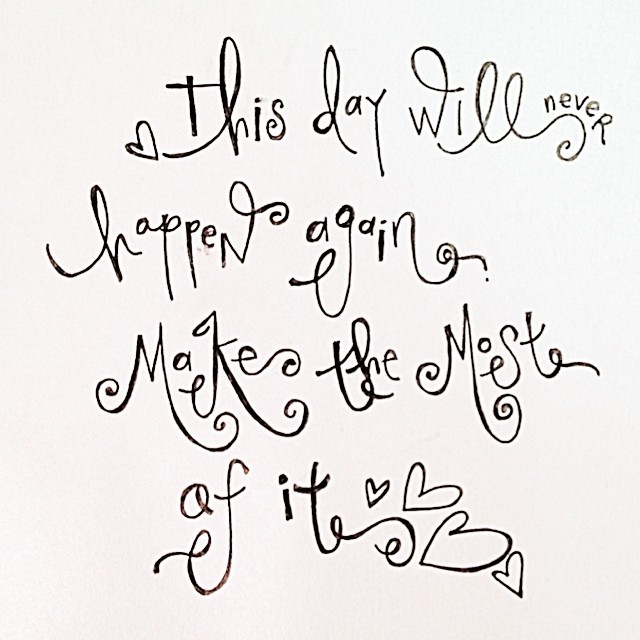 This day will never
happen again.
Make the Most
of it